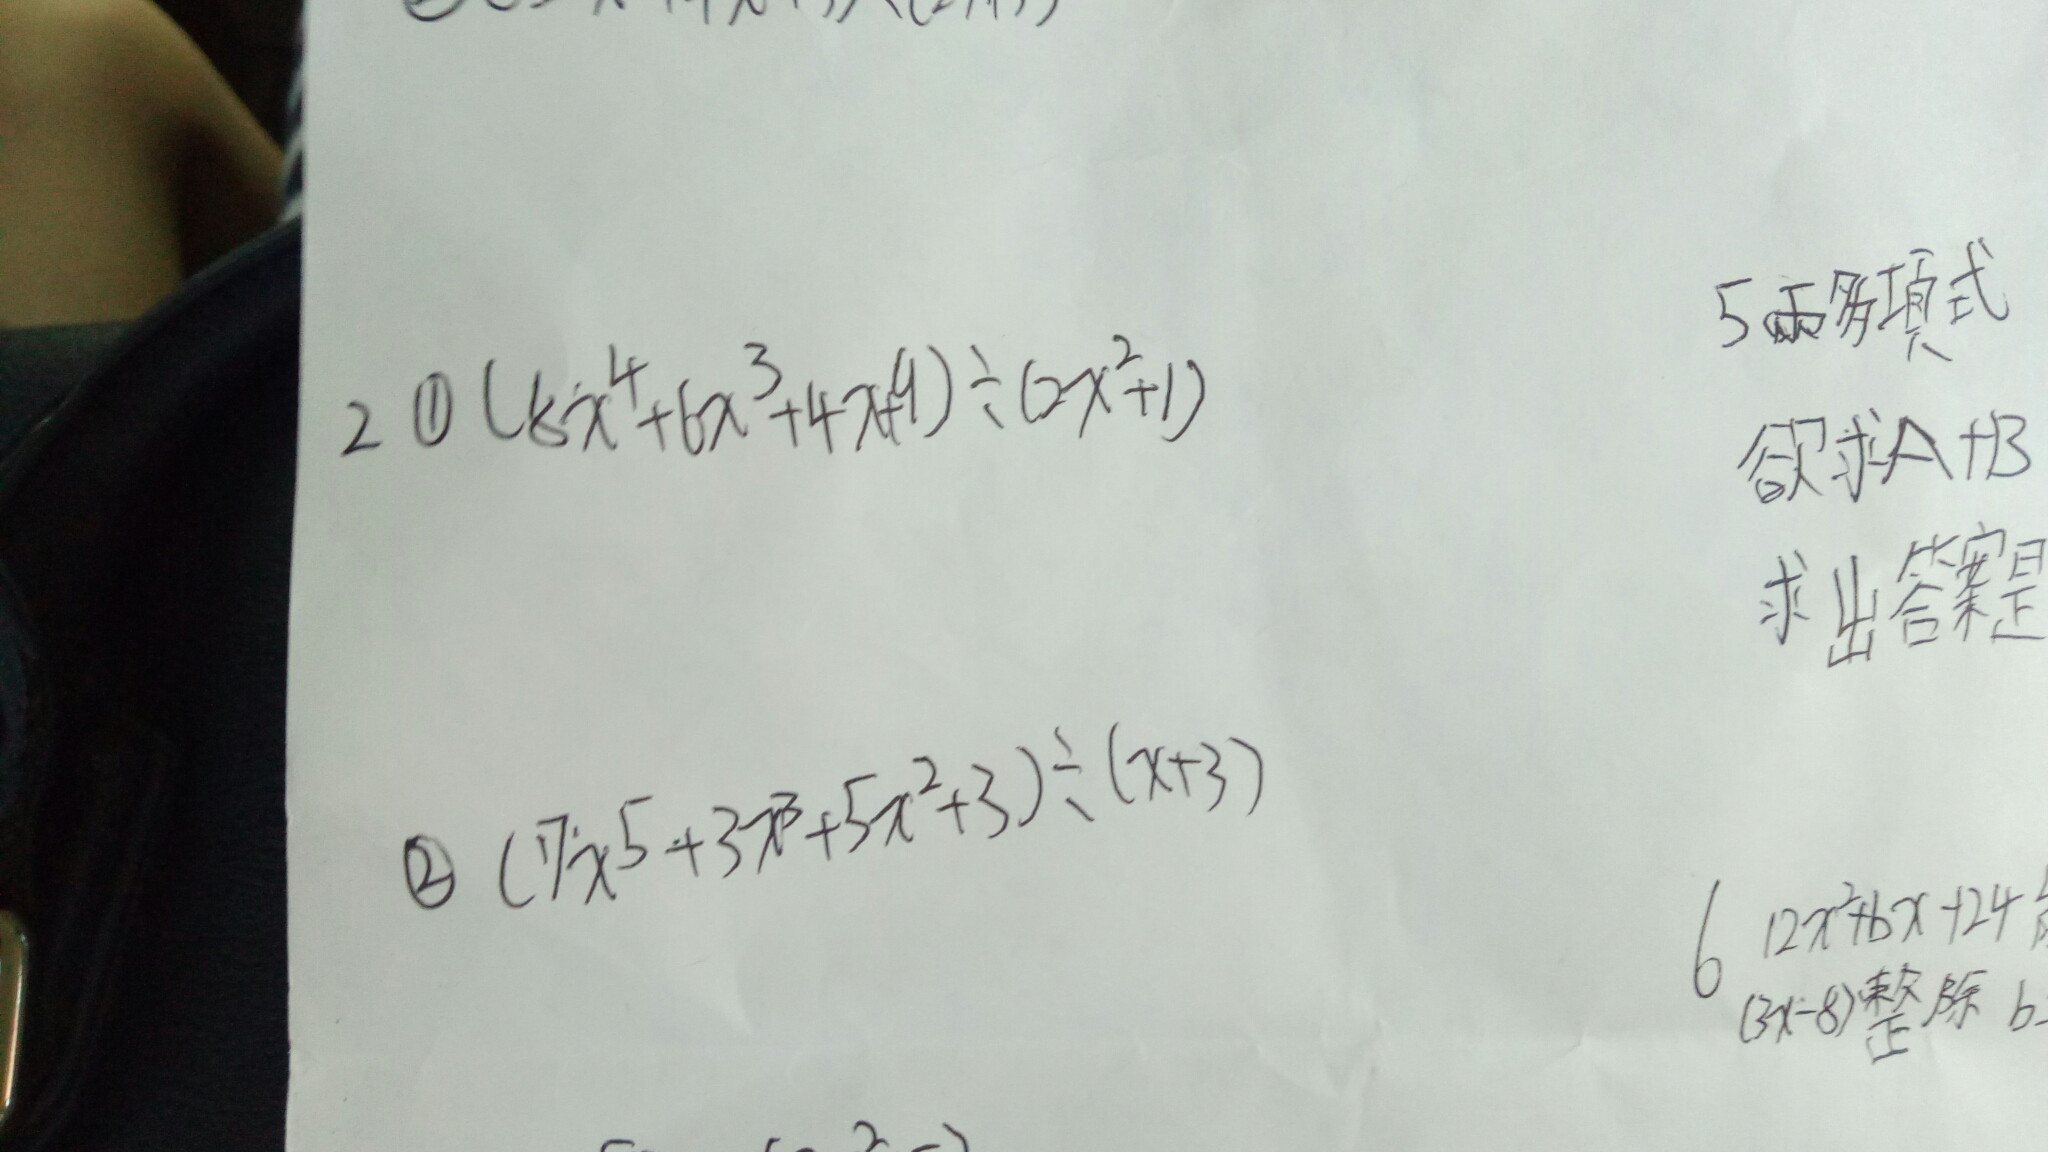 2 ① (8x⁴+6x³+4x+9)÷(2x²+1)
② (7x⁵+3x³+5x²+3)÷(x+3)
5 兩多項式
欲求A+B
求出答案是
6 12x²+bx+24
(3x-8)整除 b